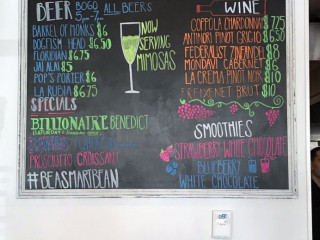 BEER BOGO ALL BEERS
5pm-7pm
BARREL OF MONKS $6
DOGFISH HEAD $6.50
FLORIDIAN $6.75
JAI ALAI $5
POP'S PORTER $6
LA RUBIA $6.75
NOW
SERVING
MIMOSAS
SPECIALS
BILLIONAIRE BENEDICT
PROSCIUTTO CROISSANT
#BEASMARTBEAN
WINE
COPPOLA CHARDONNAY $7.75
ANTINORI PINOT GRIGIO $6.50
FEDERALIST ZINFANDEL $8
MONDAVI CABERNET $6
LA CREMA PINOT NOIR $10
FREIXENET BRUT $10
SMOOTHIES
STRAWBERRY WHITE CHOCOLATE
BLUEBERRY
WHITE CHOCOLATE